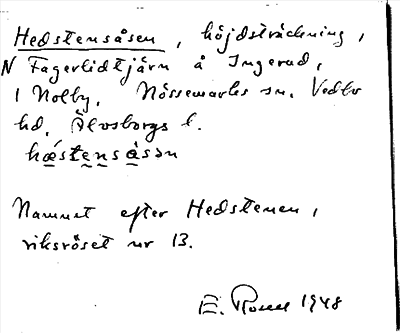 Hedstensåsen, höjdsträckning,
N Fagerlidtjärn å Ingerud,
i Nolby, Nössemarks sn. Vedbo
hd, Älvsborgs l.
hǽstensåsən
Namnet efter Hedstenen,
riksröset nr 13.
E. 1948